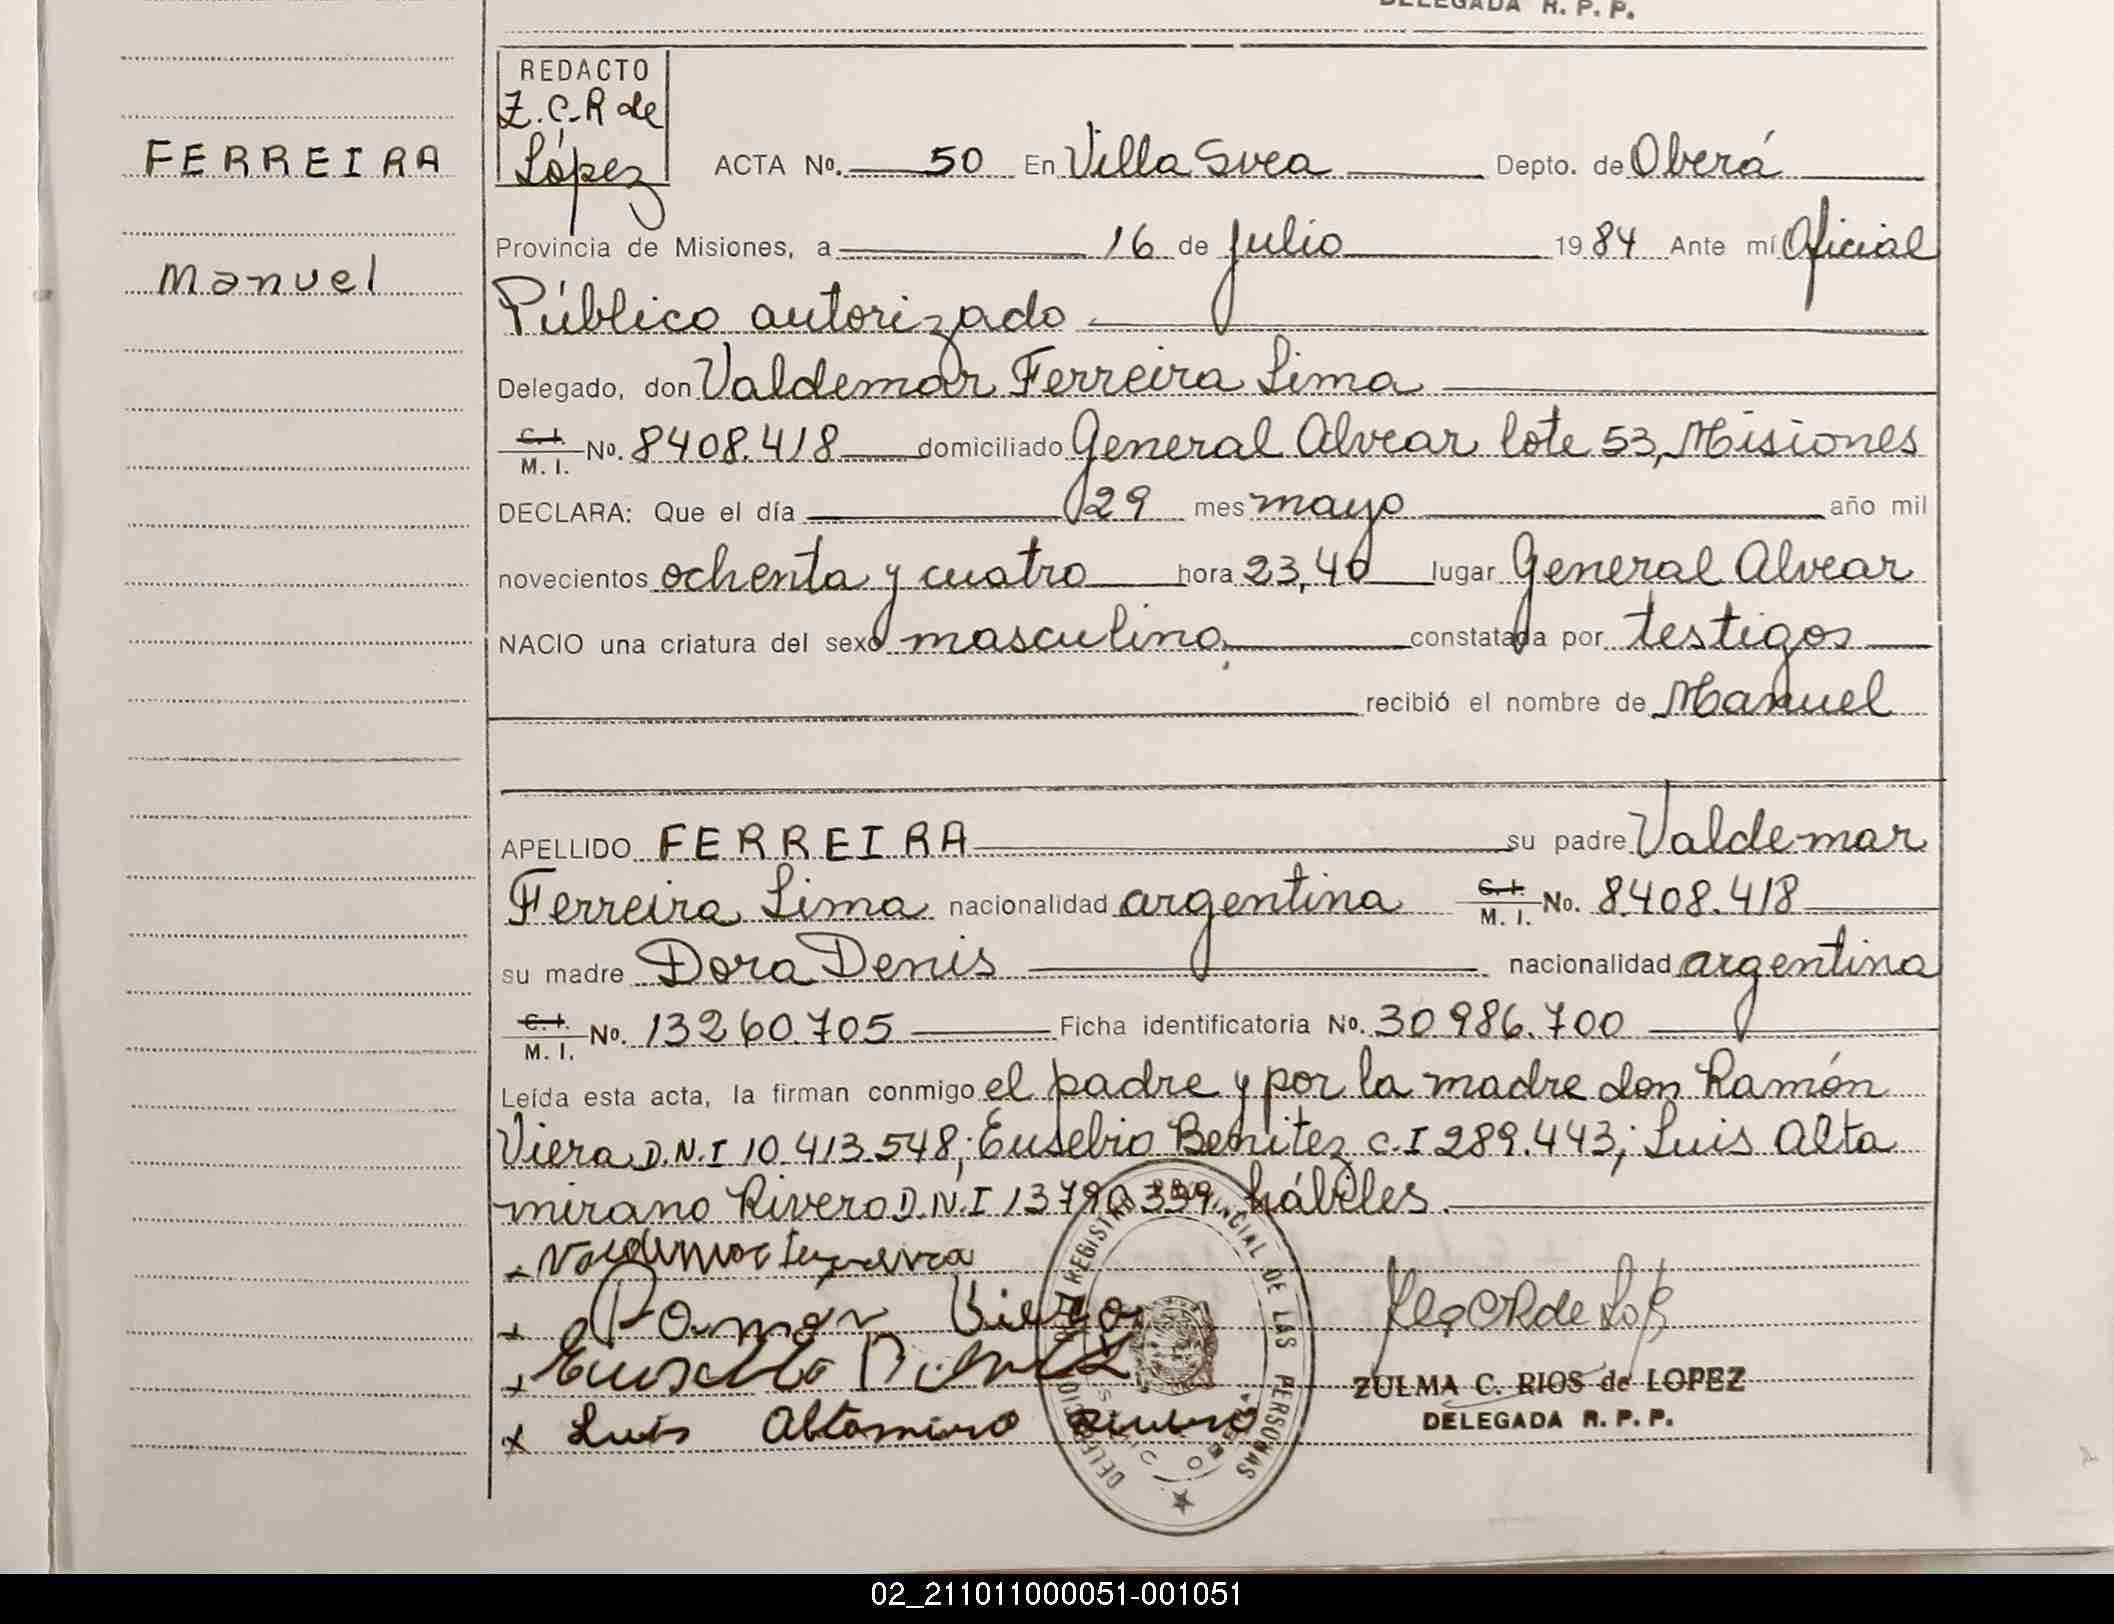 DELEGADA R. P. P.
REDACTO
Z. C. R de
López
FERREIRA
Manuel
ACTA No. 50 En Villa Svea Depto. de Oberá
Provincia de Misiones, a 16 de julio 1984 Ante mí Oficial
Público autorizado
Delegado, don Valdemar Ferreira Lima
C. I. M. I. No. 8408.418 domiciliado General Alvear lote 53, Misiones
DECLARA: Que el día 29 mes mayo año mil
novecientos ochenta y cuatro hora 23,40 lugar General Alvear
NACIO una criatura del sexo masculino, constatada por testigos
recibió el nombre de Manuel
APELLIDO FERREIRA su padre Valdemar
Ferreira Lima nacionalidad argentina C. I. M. I. No. 8.408.418
su madre Dora Denis nacionalidad argentina
C. I. M. I. No. 13260.705 Ficha identificatoria No. 30986.700
Leída esta acta, la firman conmigo el padre y por la madre don Ramón
Viera D.N.I 10.413.548; Eusebio Benitez C.I 289.443; Luis Alta
mirano Rivero D.N.I 13790.339, hábiles.
x Valdemar Ferreira
x Ramon Viera
x Eusebio Benitez
x Luis Altamirano Rivero
REGISTRO PROVINCIAL DE LAS PERSONAS
ZULMA C. RIOS de LOPEZ
DELEGADA R. P. P.
02_211011000051-001051